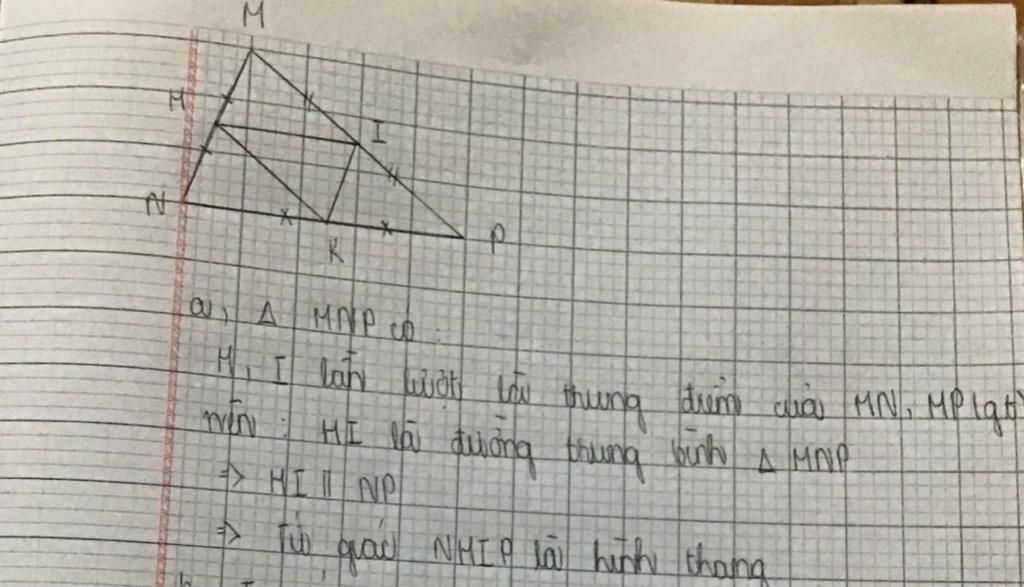 M
H
I
N
K
P
a, Δ MNP có:
H, I lần lượt là trung điểm của MN, MP (gt)
nên : HI là đường trung bình Δ MNP
=> HI // NP
=> Tứ giác NHIP là hình thang